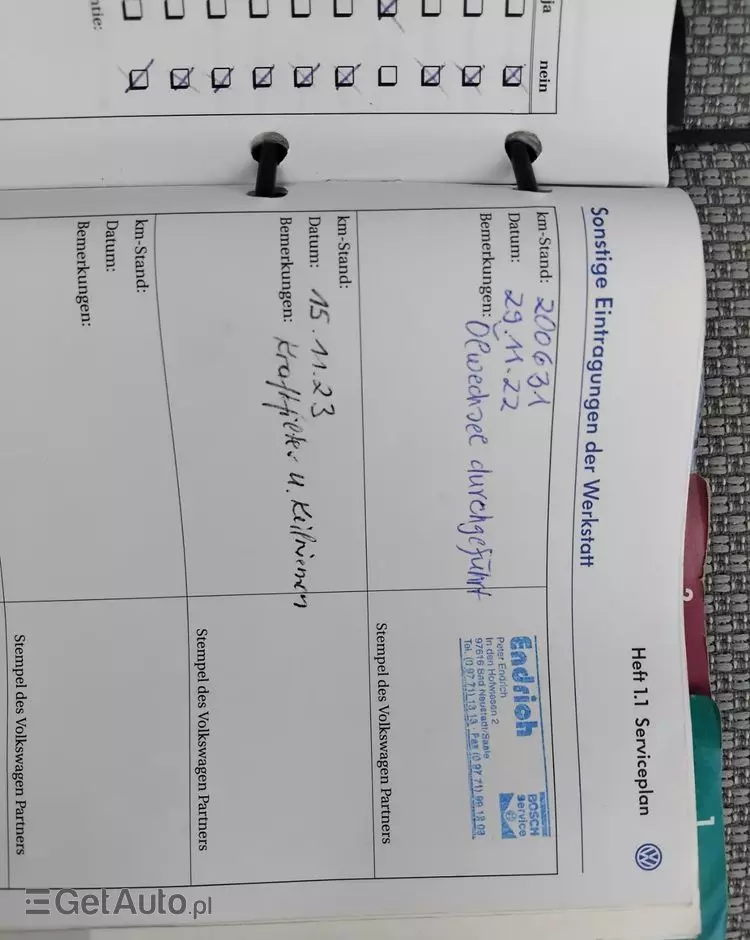 ja
nein
ntie:
Heft 1.1 Serviceplan
Sonstige Eintragungen der Werkstatt
km-Stand: 200631
Datum: 29.11.22
Bemerkungen: Ölwechsel durchgeführt
Endrich
BOSCH
Service
Peter Endrich
In den Hofwiesen 2
97616 Bad Neustadt/Saale
Tel. (0 97 71) 13 13 Fax (0 97 71) 99 18 03
Stempel des Volkswagen Partners
km-Stand:
Datum: 15.11.23
Bemerkungen: Kraftfilter u. Keilriemen
Stempel des Volkswagen Partners
km-Stand:
Datum:
Bemerkungen:
Stempel des Volkswagen Partners
2
1
GetAuto.pl